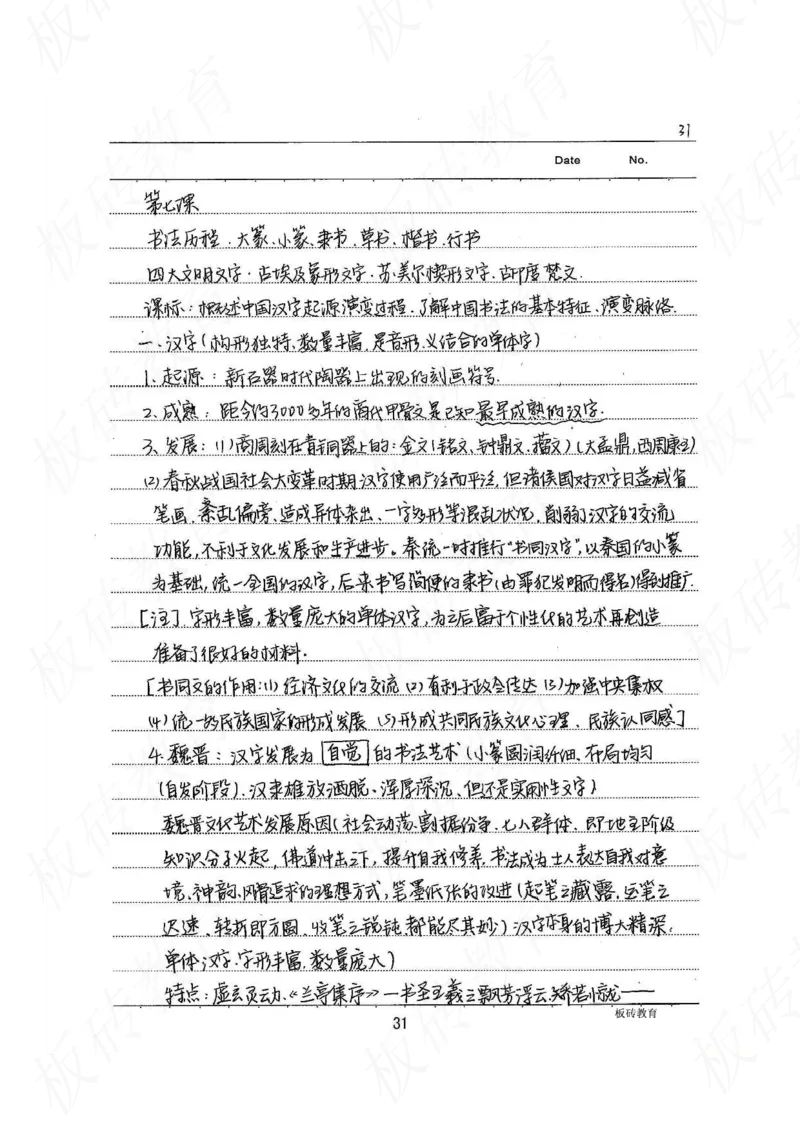 31
Date No.
第七课
书法历程.大篆、小篆、隶书、草书、楷书、行书
四大文明文字.古埃及象形文字.苏美尔楔形文字.古印度梵文.
课标：概述中国汉字起源演变过程.了解中国书法的基本特征、演变脉络.
一.汉字(构形独特、数量丰富,是音形、义结合的单体字)
1.起源：新石器时代陶器上出现的刻画符号.
2.成熟：距今约3000多年的商代甲骨文是已知最早成熟的汉字.
3.发展：(1)商周刻在青铜器上的：金文(铭文、钟鼎文、籀文)(大盂鼎,西周康王)
(2)春秋战国社会大变革时期,汉字使用广泛而平泛,但诸侯国对汉字日益减省
笔画,紊乱偏旁、造成异体杂出、一字多形等混乱状况,削弱汉字的交流
功能,不利于文化发展和生产进步。秦统一时推行“书同汉字”,以秦国的小篆
为基础,统一全国的汉字,后来书写简便的隶书(由罪犯发明而得名)得到推广.
[注]字形丰富,数量庞大的单体汉字,为之后富于个性化的艺术再创造
准备了很好的材料.
[书同文的作用:(1)经济文化的交流(2)有利于政令传达(3)加强中央集权
(4)统一的民族国家的形成发展(5)形成共同民族文化心理、民族认同感]
4.魏晋：汉字发展为自觉的书法艺术(小篆圆润纤细、布局均匀
(自发阶段).汉隶雄放洒脱、浑厚深沉、但还是实用性文字)
魏晋文化艺术发展原因(社会动荡、割据纷争、士人群体、即地主阶级
知识分子兴起,佛道冲击之下,提升自我修养.书法成为士人表达自我对意
境、神韵、风骨追求的理想方式,笔墨纸张的改进(起笔之藏露、运笔之
迟速、转折即方圆、收笔之锐钝都能尽其妙)汉字本身的博大精深,
单体汉字.字形丰富,数量庞大)
特点：虚玄灵动.《兰亭集序》—书圣王羲之飘若浮云,矫若惊龙——
板砖教育
31